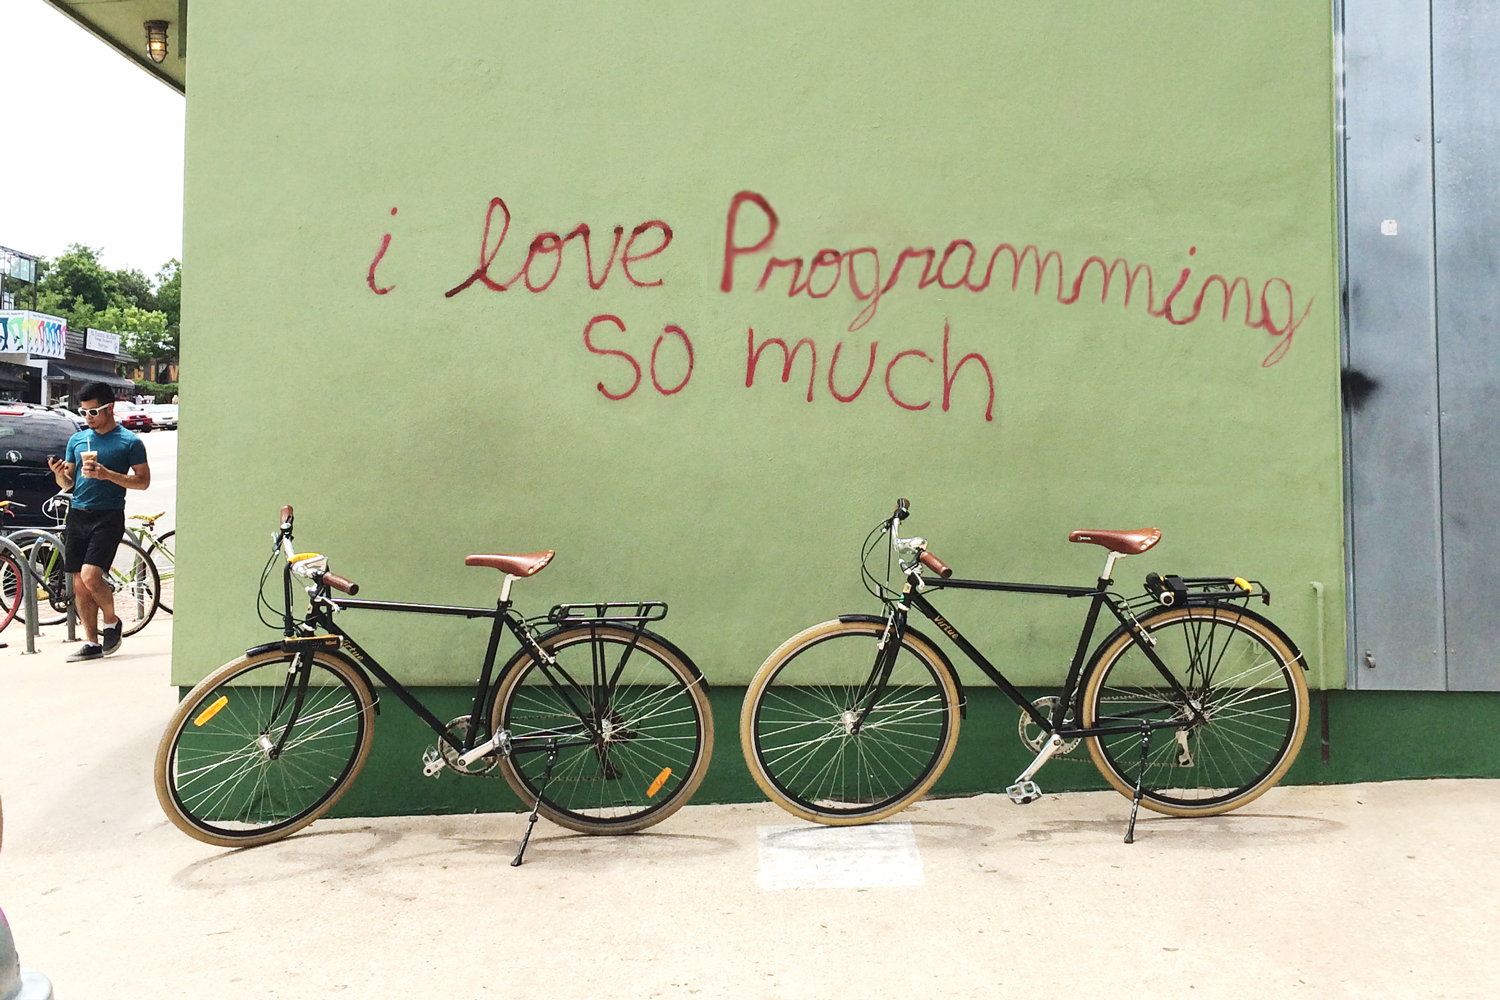 i love Programming
so much
Virtue
Virtue